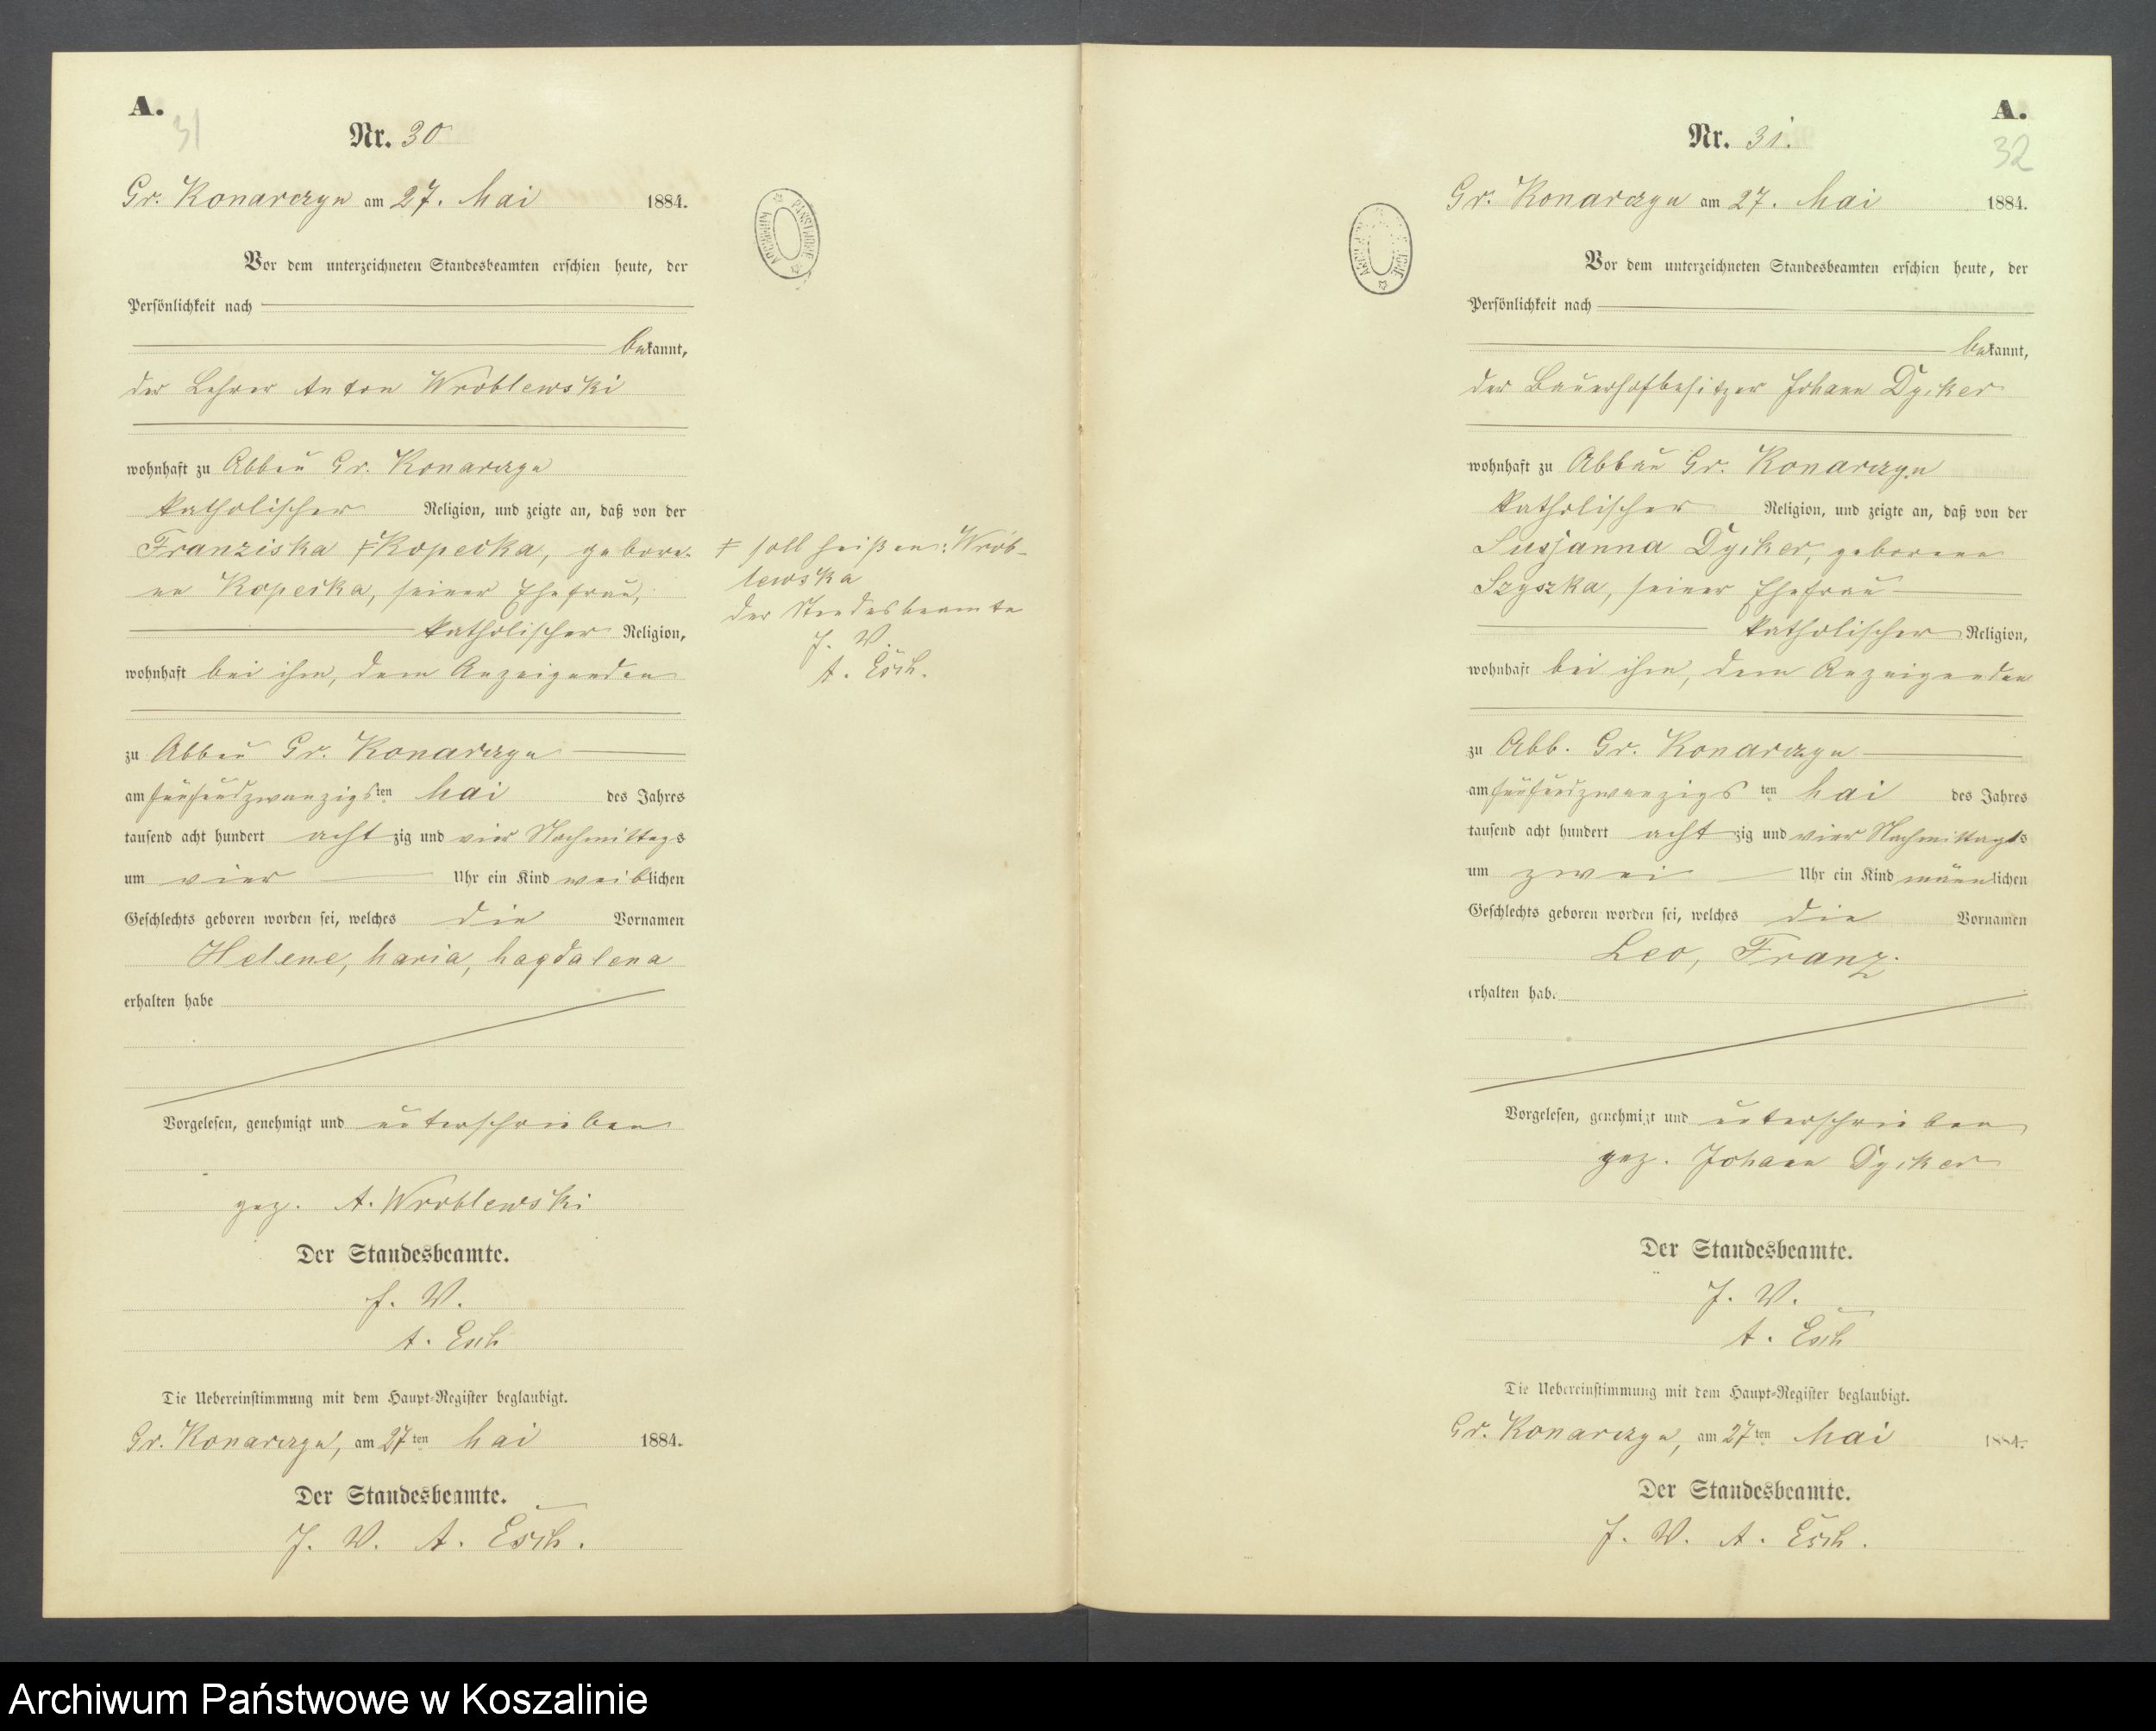 A.
31
Nr. 30
Gr. Konarczyn am 27. Mai 1884.
Vor dem unterzeichneten Standesbeamten erschien heute, der
Persönlichkeit nach
bekannt,
der Lehrer Anton Wróblewski
wohnhaft zu Abbau Gr. Konarczyn
katholischer Religion, und zeigte an, daß von der
Franziska ≠ Kopecka, gebore-
ne Kopecka, seiner Ehefrau,
katholischer Religion,
wohnhaft bei ihm, dem Anzeigenden
zu Abbau Gr. Konarczyn
am fünfundzwanzigsten Mai des Jahres
tausend acht hundert achtzig und vier Nachmittags
um vier Uhr ein Kind weiblichen
Geschlechts geboren worden sei, welches die Vornamen
Helene, Maria, Magdalena
erhalten habe
Vorgelesen, genehmigt und unterschrieben
gez. A. Wroblewski
Der Standesbeamte.
J. V.
A. Esch
Die Uebereinstimmung mit dem Haupt-Register beglaubigt.
Gr. Konarczyn, am 27ten Mai 1884.
Der Standesbeamte.
J. V. A. Esch.
ARCHIWUM PAŃSTWOWE
≠ soll heißen: Wrób-
lewska
der Standesbeamte
J. V.
A. Esch.
A.
32
Nr. 31.
Gr. Konarczyn am 27. Mai 1884.
Vor dem unterzeichneten Standesbeamten erschien heute, der
Persönlichkeit nach
bekannt,
der Bauerhofbesitzer Johann Dycker
wohnhaft zu Abbau Gr. Konarczyn
katholischer Religion, und zeigte an, daß von der
Susanna Dycker, geborene
Szyszka, seiner Ehefrau
katholischer Religion,
wohnhaft bei ihm, dem Anzeigenden
zu Abb. Gr. Konarczyn
am fünfundzwanzigsten Mai des Jahres
tausend acht hundert achtzig und vier Nachmittags
um zwei Uhr ein Kind männlichen
Geschlechts geboren worden sei, welches die Vornamen
Leo, Franz.
erhalten habe
Vorgelesen, genehmigt und unterschrieben
gez. Johann Dycker
Der Standesbeamte.
J. V.
A. Esch
Die Uebereinstimmung mit dem Haupt-Register beglaubigt.
Gr. Konarczyn, am 27ten Mai 1884.
Der Standesbeamte.
J. V. A. Esch.
Archiwum Państwowe w Koszalinie